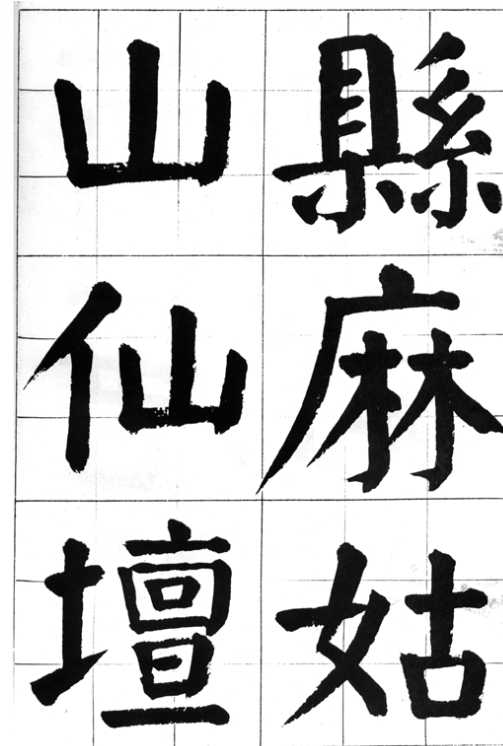 縣麻姑
山仙壇